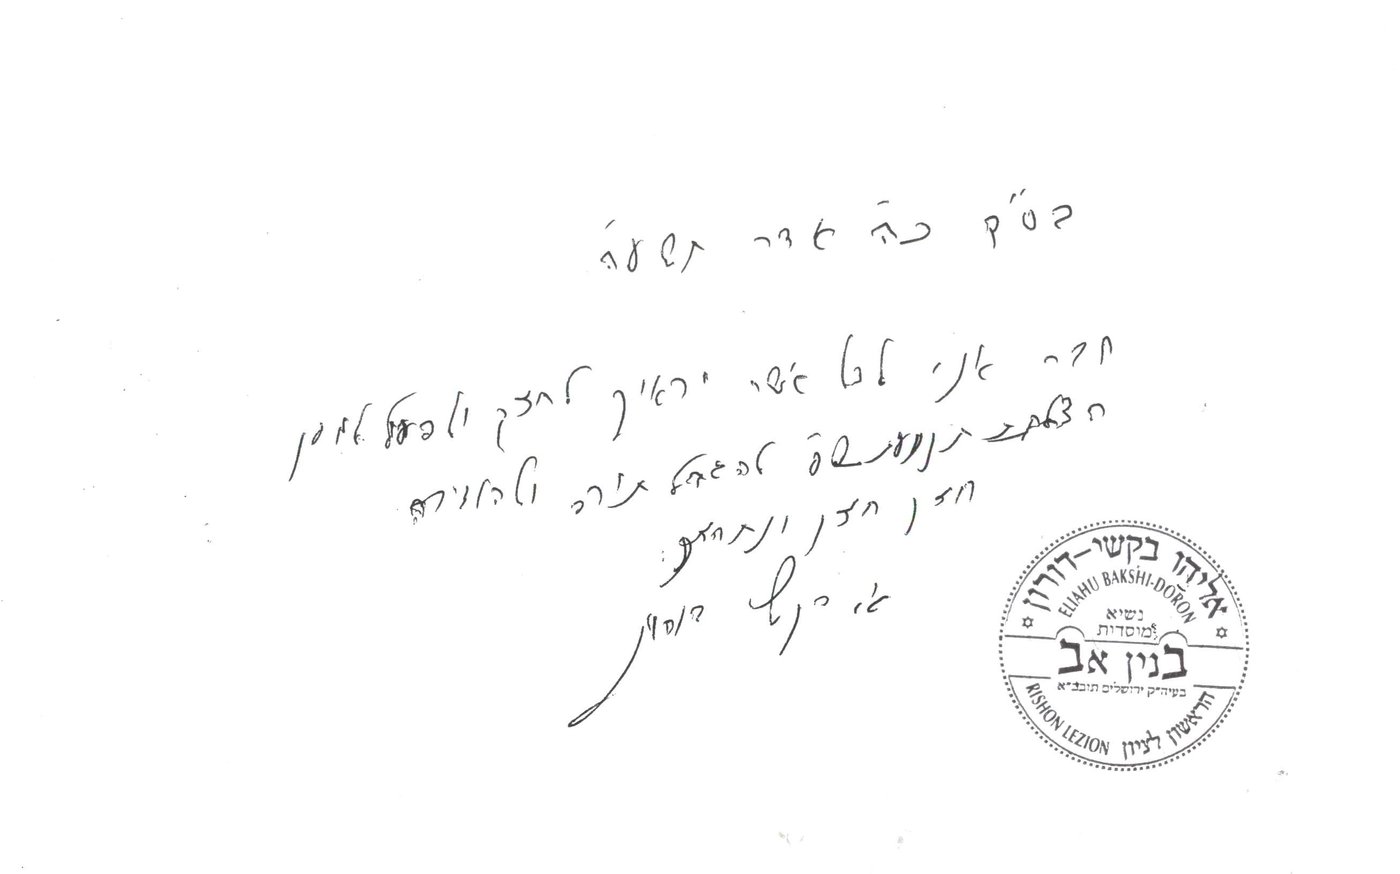 בס"ק כ"ה אדר תשע"ה
אני לכל אשר יראיך לחזק ולפעול למען
להגדיל תורה ולהאדירה
חזק חזק ונתחזק
א. בקשי דורון
אליהו בקשי-דורון
ELIAHU BAKSHI-DORON
נשיא
מוסדות
בנין אב
בעיה"ק ירושלים תובב"א
הראשון לציון
RISHON LEZION